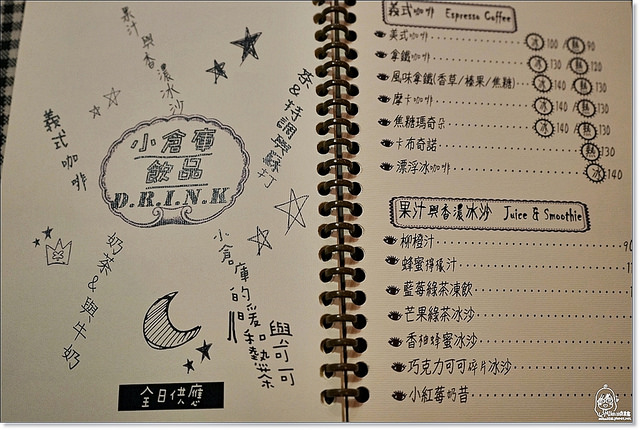 果汁與香濃冰沙
茶&特調與蘇打
義式咖啡
小倉庫
飲品
D.R.I.N.K
奶茶&與牛奶
小倉庫的暖
與可可
全日供應
義式咖啡 Espresso Coffee
美式咖啡 冰100/熱90
拿鐵咖啡 冰130/熱120
風味拿鐵(香草/榛果/焦糖) 冰140/熱130
摩卡咖啡 冰140/熱130
焦糖瑪奇朵 冰140/熱130
卡布奇諾 熱130
漂浮冰咖啡 冰140
果汁與香濃冰沙 Juice & Smoothie
柳橙汁
蜂蜜檸檬汁
藍莓綠茶凍飲
芒果綠茶冰沙
香柚蜂蜜冰沙
巧克力可可碎片冰沙
小紅莓奶昔